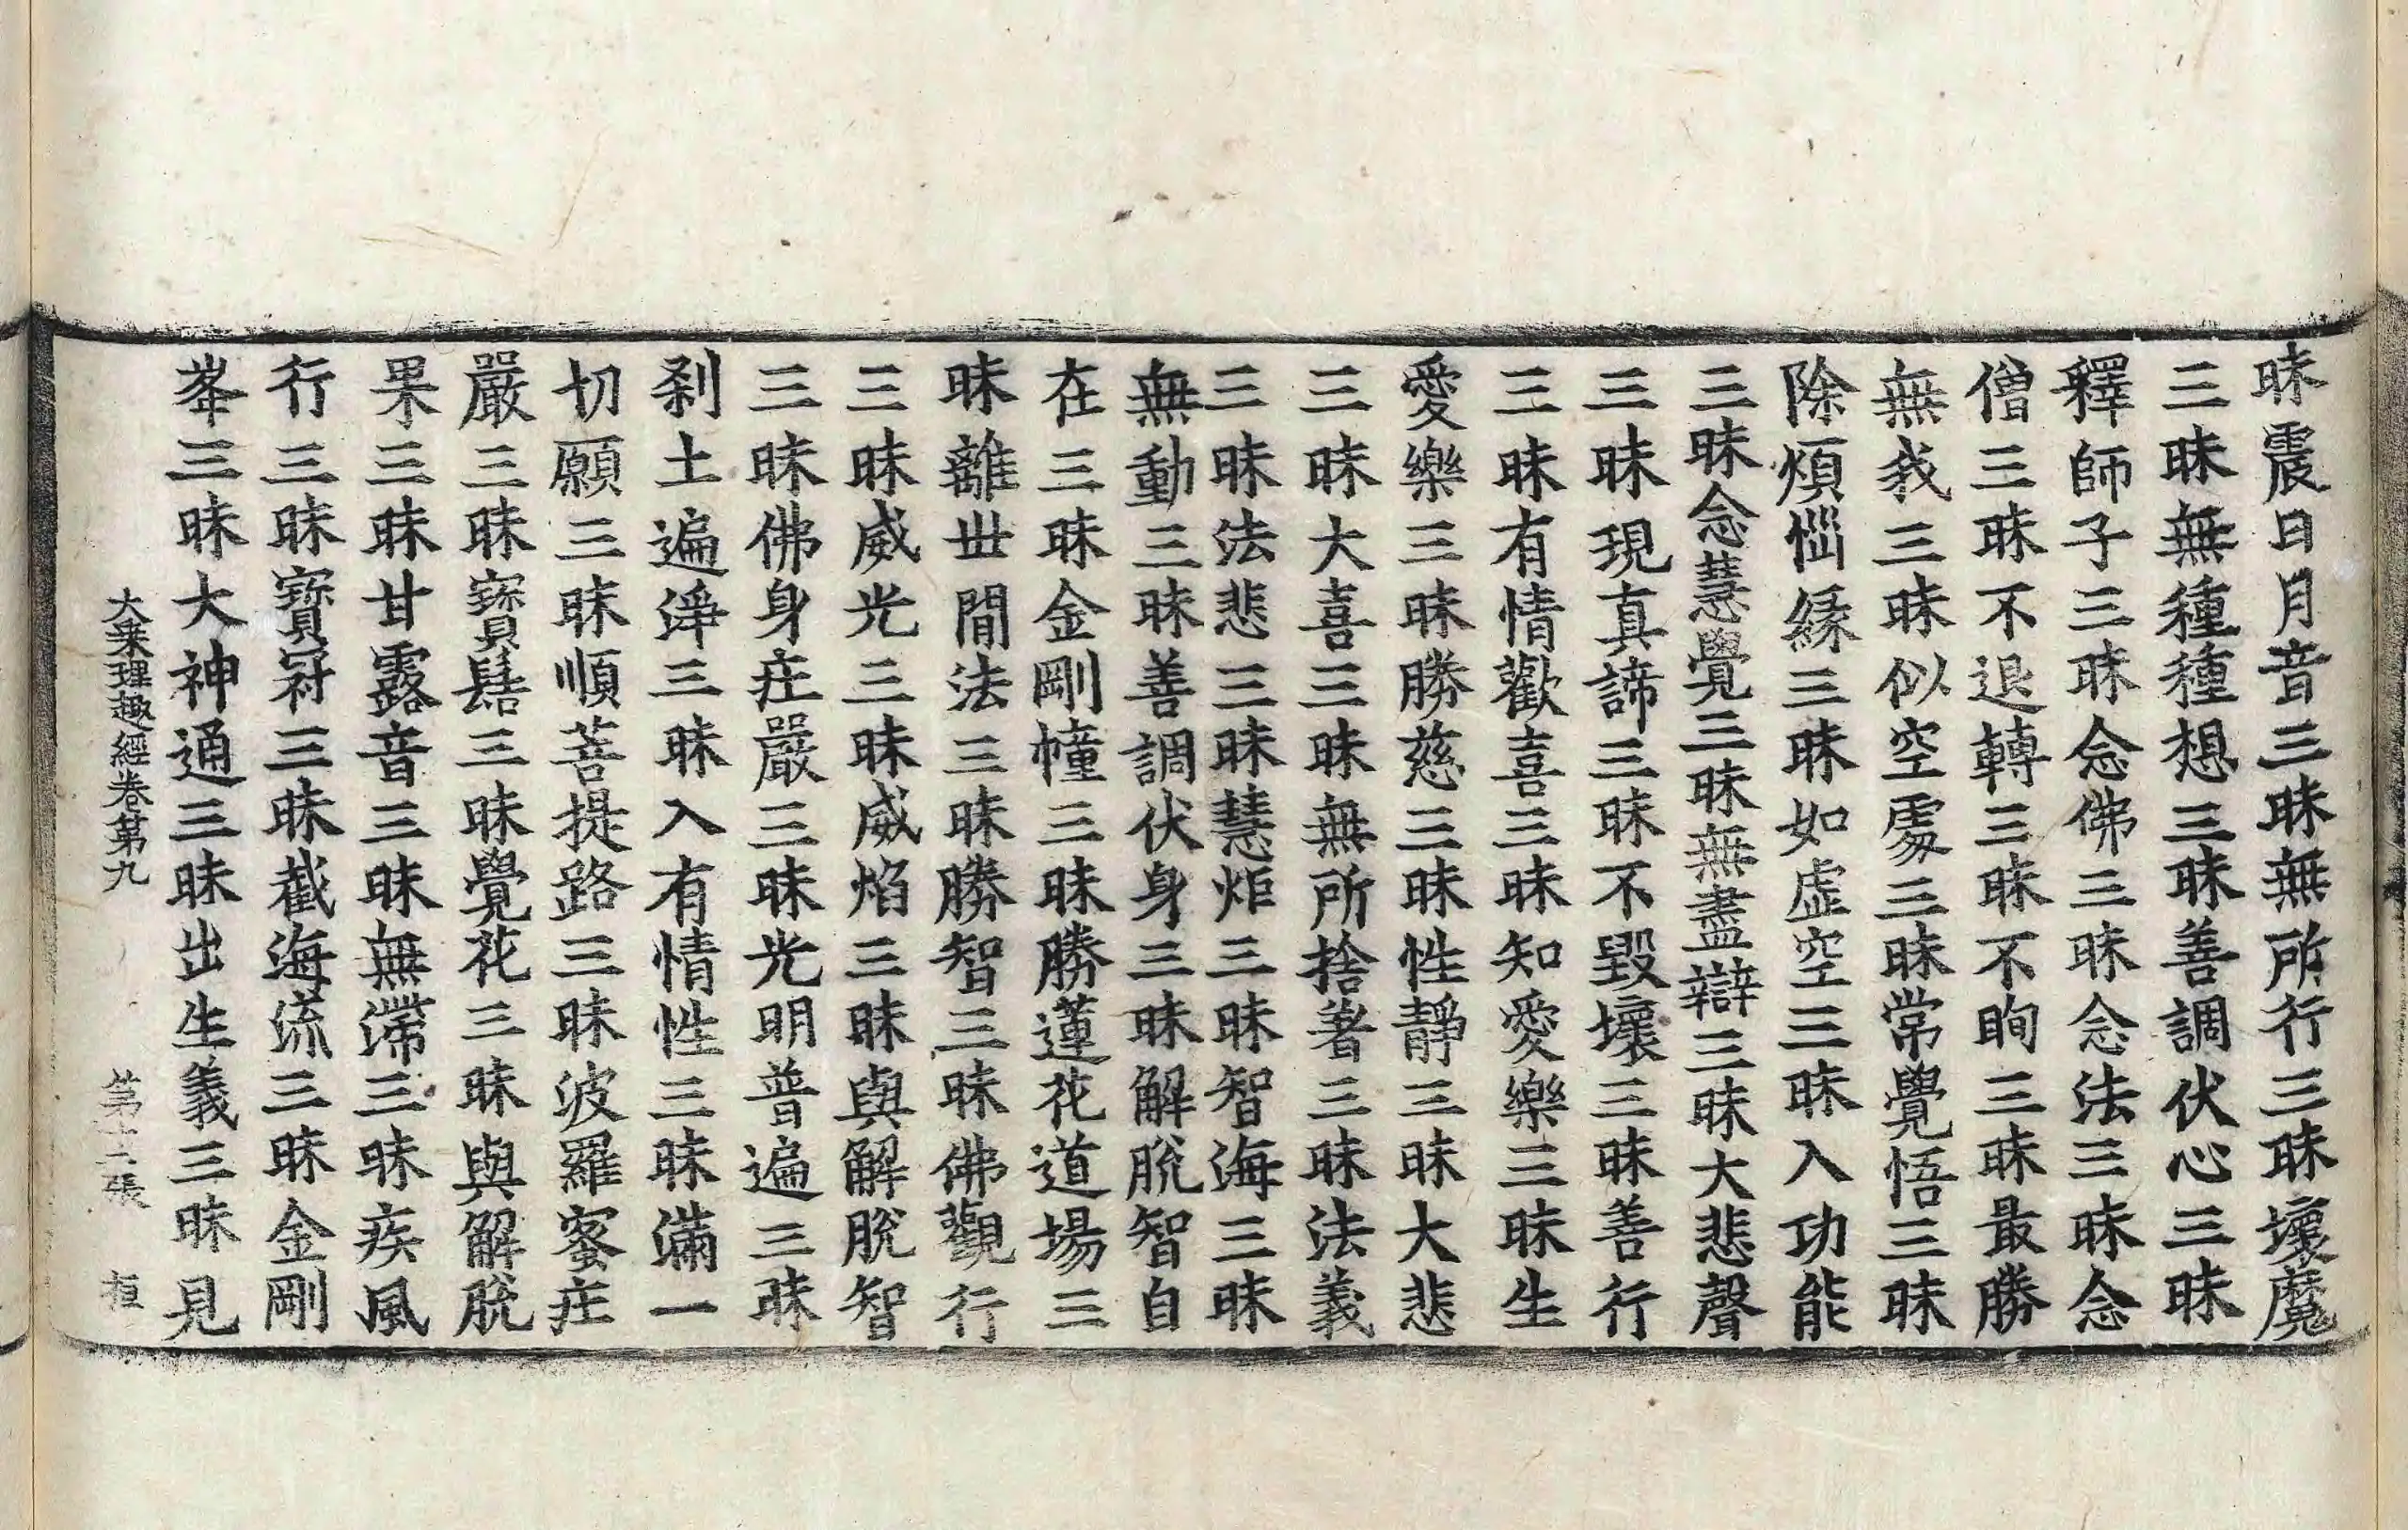 昧震日月音三昧無所行三昧壞魔
三昧無種種想三昧善調伏心三昧
釋師子三昧念佛三昧念法三昧念
僧三昧不退轉三昧不眴三昧最勝
無我三昧似空處三昧常覺悟三昧
除煩惱緣三昧如虛空三昧入功能
三昧念慧覺三昧無盡辯三昧大悲聲
三昧現真諦三昧不毀壞三昧善行
三昧有情歡喜三昧知愛樂三昧生
愛樂三昧勝慈三昧性靜三昧大悲
三昧大喜三昧無所捨著三昧法義
三昧法悲三昧慧炬三昧智海三昧
無動三昧善調伏身三昧解脫智自
在三昧金剛幢三昧勝蓮花道場三
昧離世間法三昧勝智三昧佛觀行
三昧威光三昧威焰三昧與解脫智
三昧佛身莊嚴三昧光明普遍三昧
剎土遍淨三昧入有情性三昧滿一
切願三昧順菩提路三昧波羅蜜莊
嚴三昧寶髻三昧覺花三昧與解脫
果三昧甘露音三昧無滯三昧疾風
行三昧寶冠三昧截海流三昧金剛
峯三昧大神通三昧出生義三昧見
大乘理趣經卷第九 第十二張 桓